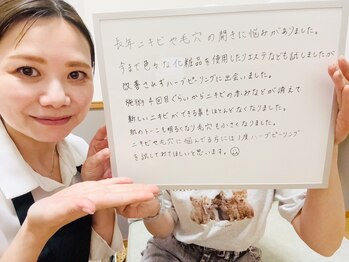 長年ニキビや毛穴の開きに悩みがありました。
今まで色々な化粧品を使用したりエステなども試しましたが
改善されずハーブピーリングに出会いました。
施術4回目ぐらいからニキビの赤みなどが消えて
新しいニキビができる事もほとんどなくなりました。
肌のトーンも明るくなり毛穴も小さくなりました。
ニキビや毛穴に悩んでる方には1度ハーブピーリング
を試してみてほしいと思います。